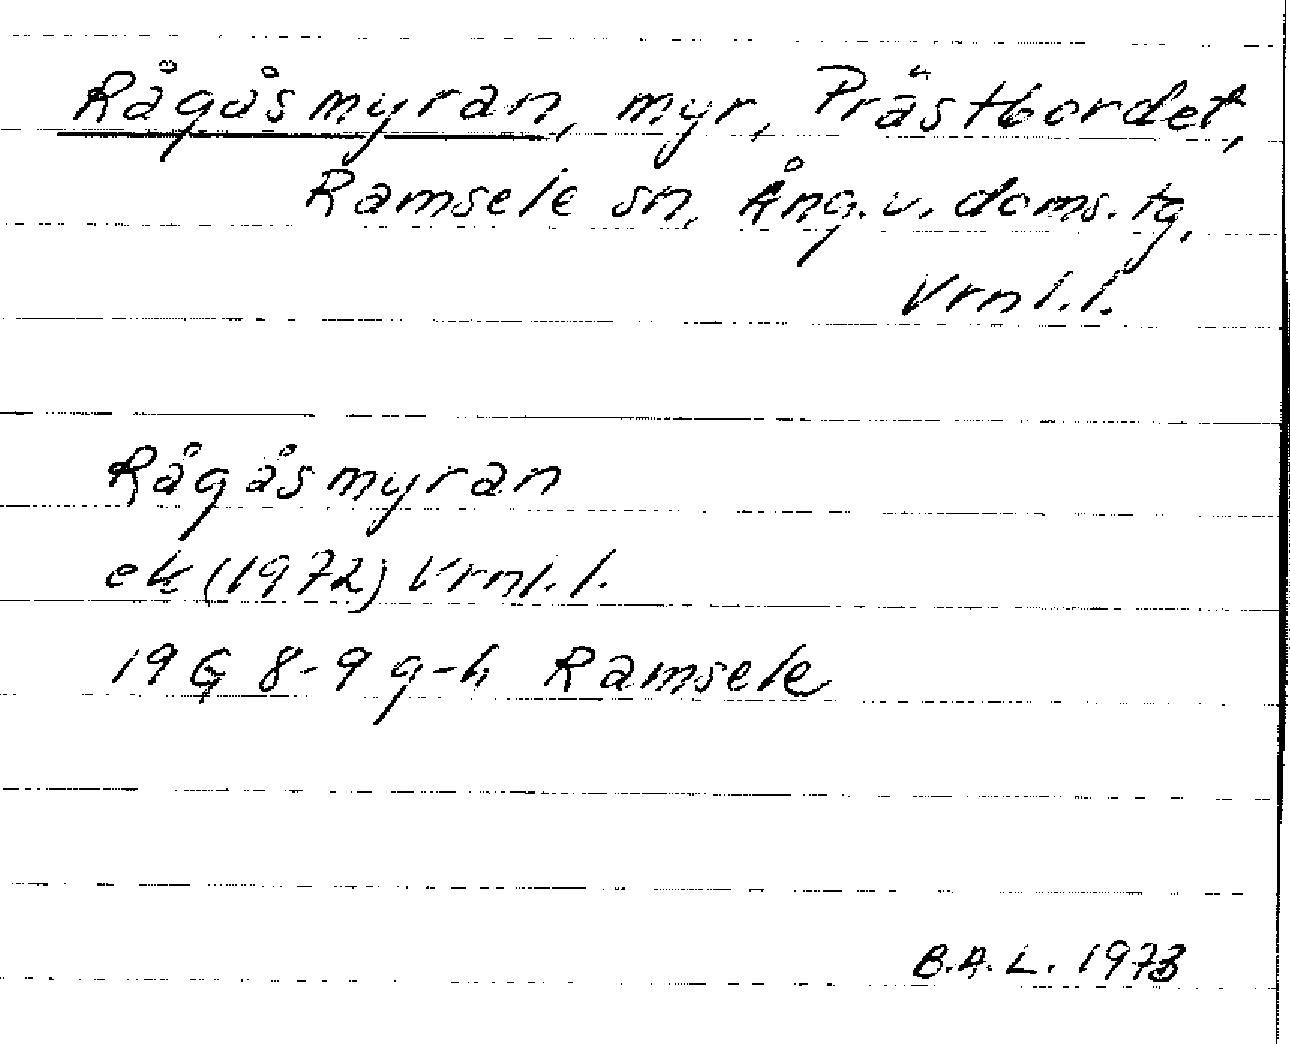 Rågåsmyran, myr, Prästbordet,
Ramsele sn, Ång.v. doms.tg,
Vrml.l.
Rågåsmyran
ek (1972) Vrml.l.
19 G 8-9 g-h Ramsele
B.A.L. 1973